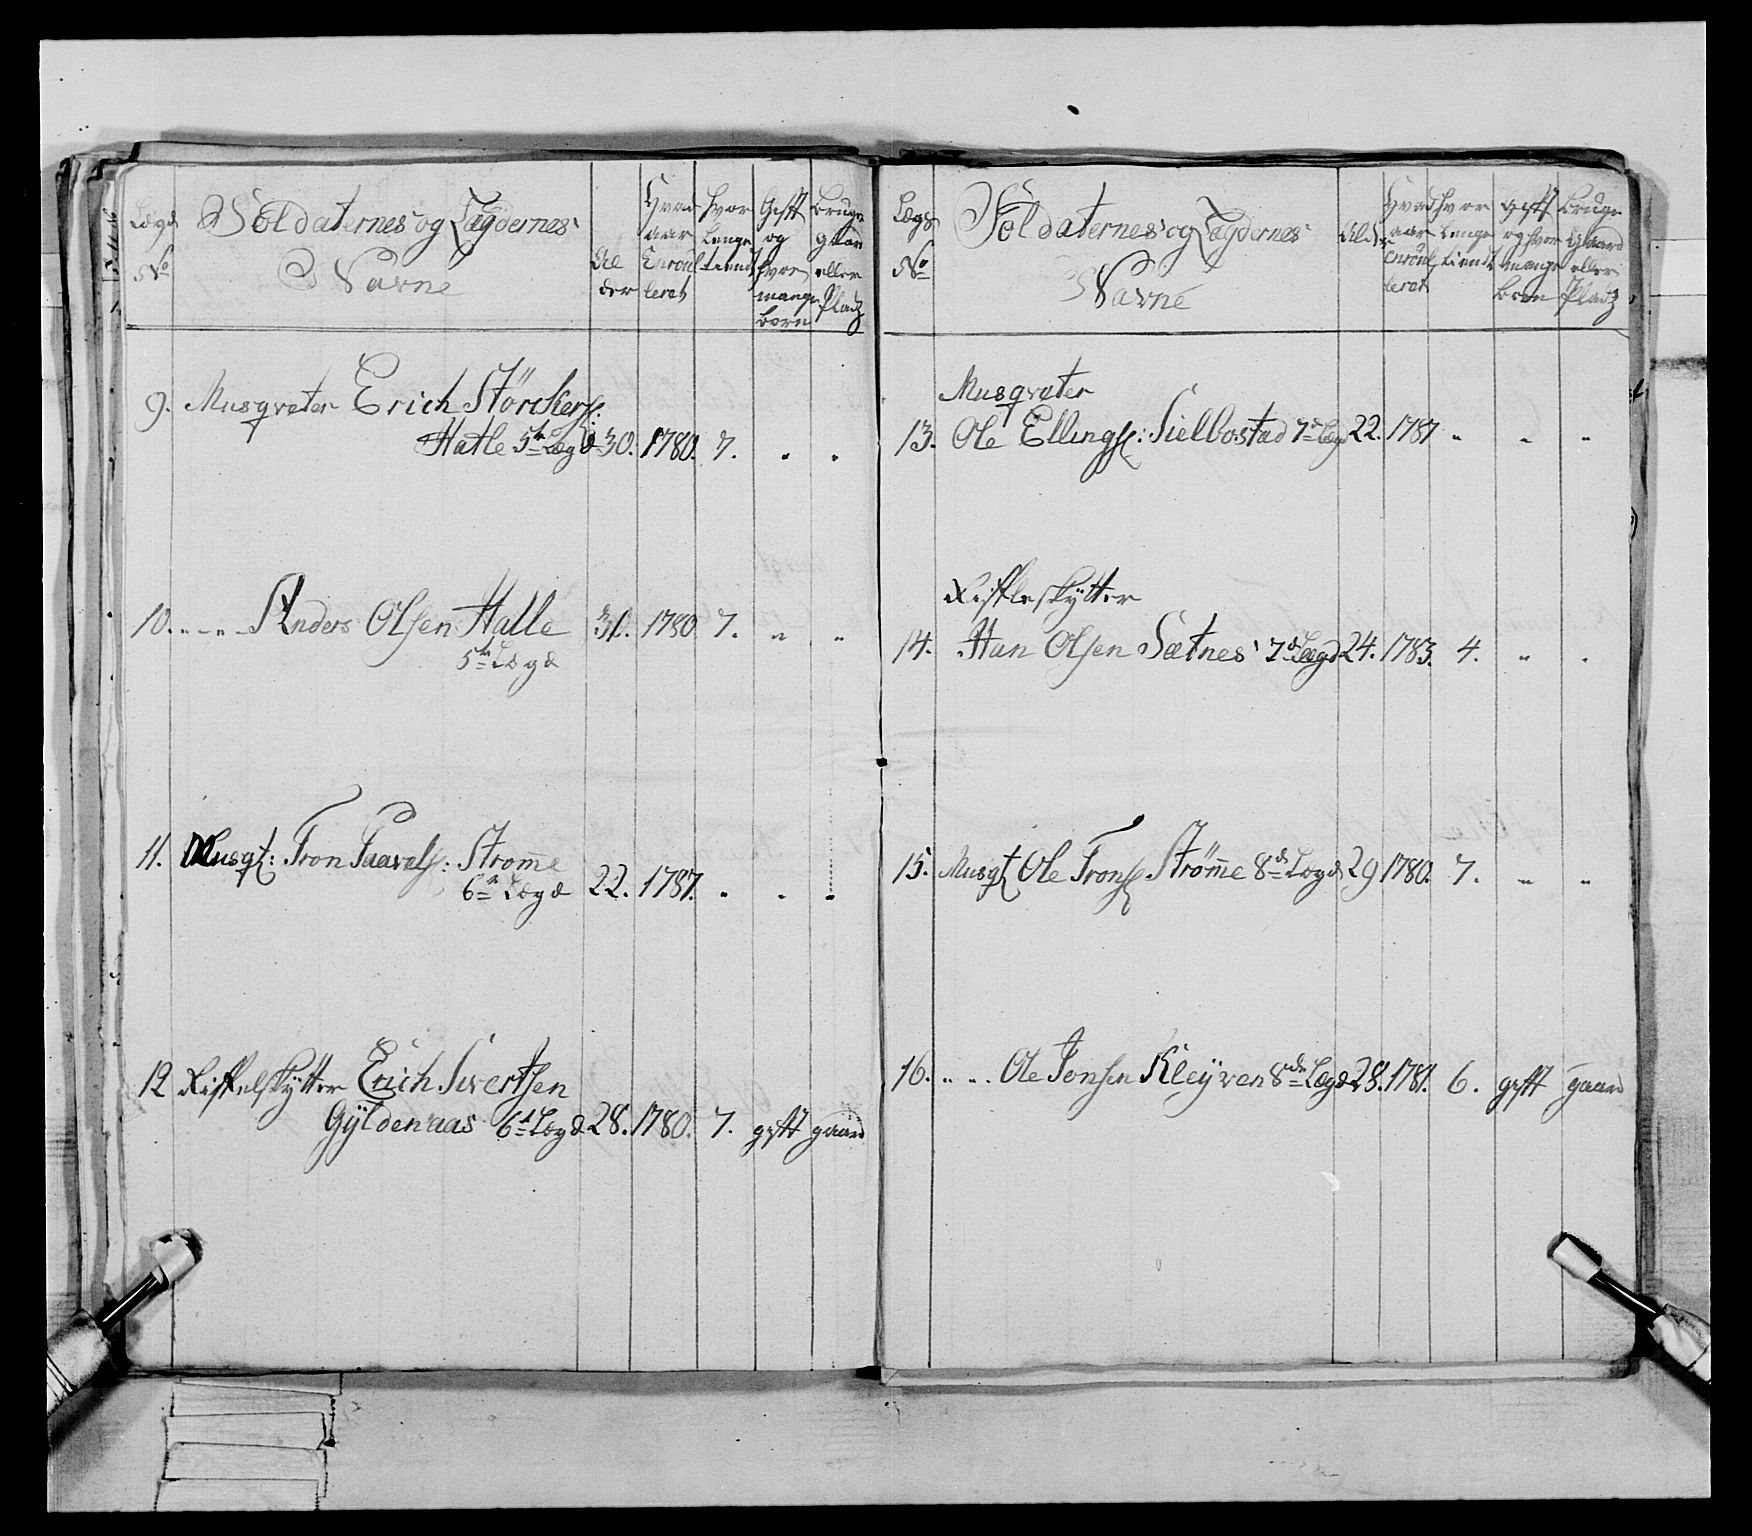 Lægd
No
Soldaternes og Lægdernes
Navne
Al
der
Hvad
aar
Enroul
leret
hvor
lenge
tiendt
Gift
og
hvor
mange
børn
Bruge
gaard
eller
Pladz
9. Musqveter Erich Störckers:
Hatle 5te Lægd 30. 1780. 7. . .
10. „ - „ - Anders Olsen Halle 31. 1780 7. „ „
5te Lægd
11. Musqt: Tron Paavels: Strom̄e
6te Lægd 22. 1787. „ . „
12 Riffelskytter Erich Sivertsen
Gÿldenaas 6te Lægd 28. 1780. 7. gift gaard
Lægd
No
Soldaternes og Lægdernes
Navne
Alder
Hvad
aar
Enroul
leret
hvor
lenge
tiendt
Gift
og hvor
mange
børn
Bruge
Gaard
eller
Pladz
Musqveter
13. Ole Ellings: Sielbostad 7de Lægd 22. 1787 „ „ „
Riffleskytter
14. Han Olsen Sætnes 7de Lægd 24. 1783. 4. „ .
15. Musqt Ole Trons Ström̄e 8de Lægd 29 1780. 7. „ „
16. „ - „ - Ole Jonsen Kleÿven 8de Lægd 28. 1781. 6. gift gaard